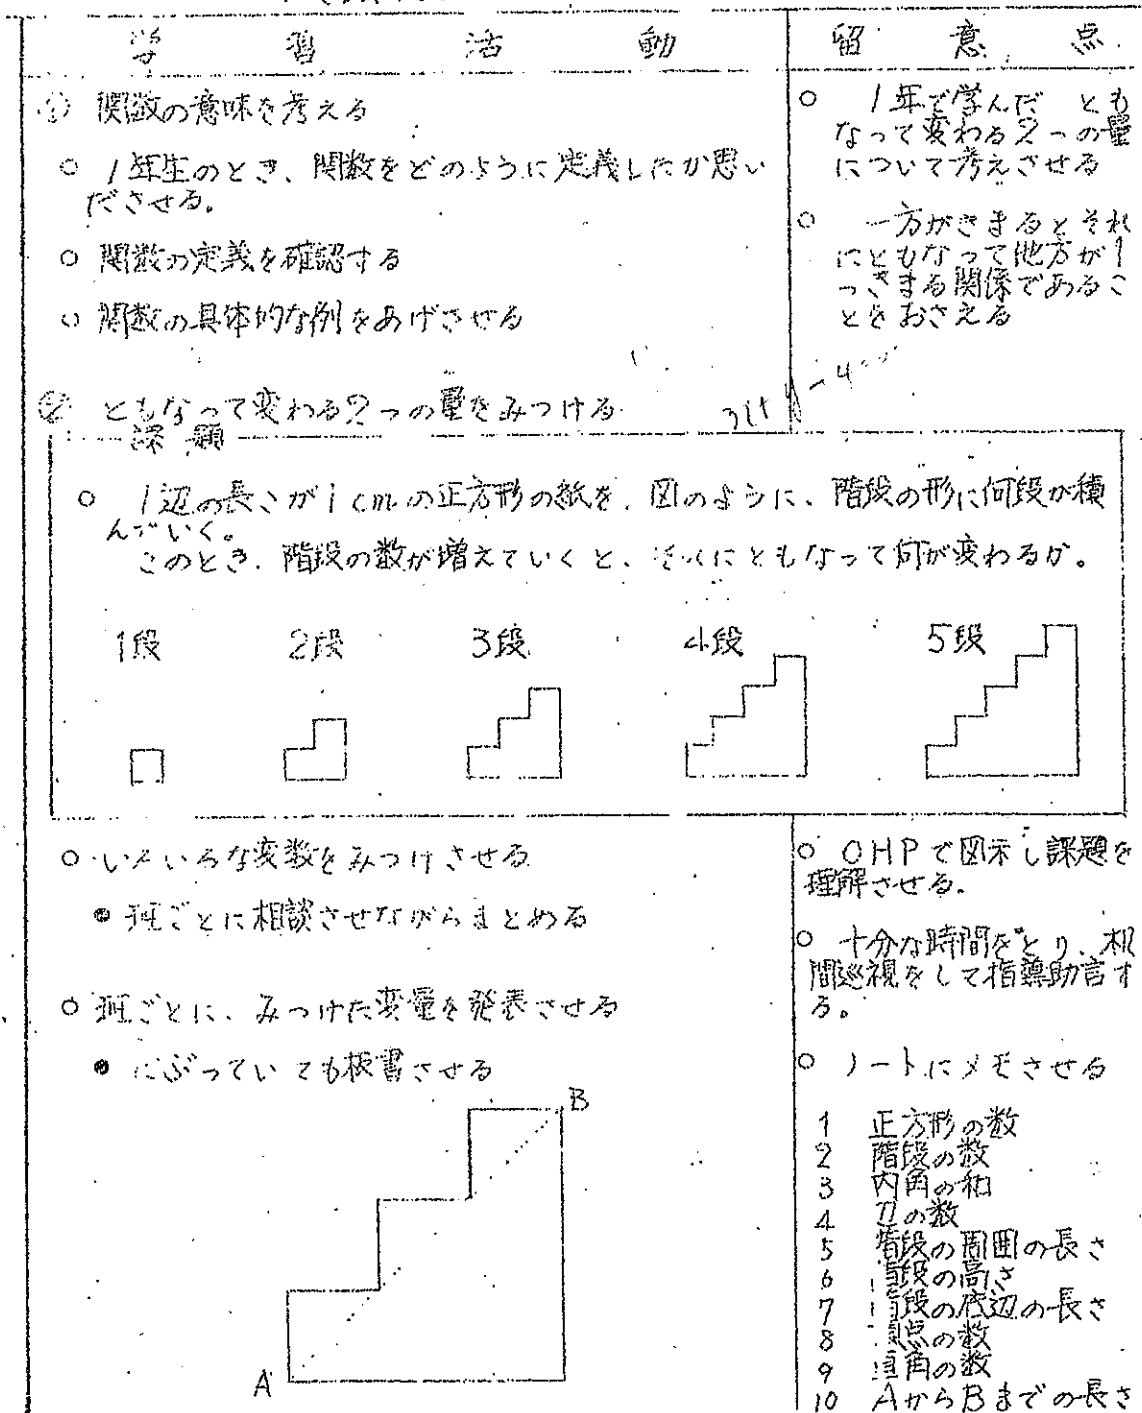 学習活動
留意点
① 関数の意味を考える
○ 1年生のとき、関数をどのように定義したか思い
ださせる。
○ 関数の定義を確認する
○ 関数の具体的な例をあげさせる
○ 1年で学んだ とも
なって変わる2つの量
について考えさせる
○ 一方がきまるとそれ
にともなって他方が1
つきまる関係であるこ
とをおさえる
② ともなって変わる2つの量をみつける
課題
○ 1辺の長さが1cmの正方形の紙を、図のように、階段の形に何段か積
んでいく。
このとき、階段の数が増えていくと、それにともなって何が変わるか。
1段 2段 3段 4段 5段
○ いろいろな変数をみつけさせる
● 班ごとに相談させながらまとめる
○ 班ごとに、みつけた変量を発表させる
● だぶっていても板書させる
B
A
○ OHPで図示し課題を
理解させる。
○ 十分な時間をとり、机
間巡視をして指導助言す
る。
○ ノートにメモさせる
1 正方形の数
2 階段の数
3 内角の和
4 辺の数
5 階段の周囲の長さ
6 階段の高さ
7 階段の底辺の長さ
8 頂点の数
9 直角の数
10 AからBまでの長さ